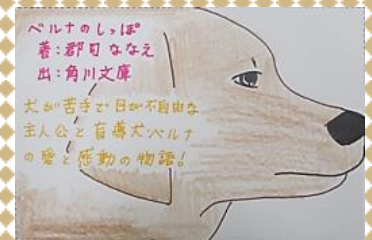 ベルナのしっぽ
著:郡司ななえ
出:角川文庫
犬が苦手で目が不自由な
主人公と盲導犬ベルナ
の愛と感動の物語!